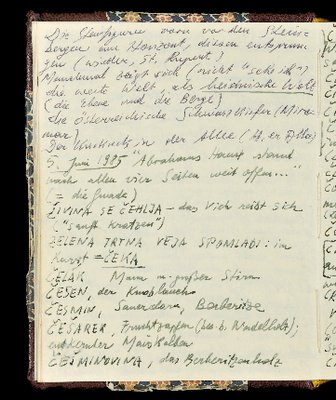 Die Steinfiguren vorn vor den Steinbergen
bergen am Horizont, diesen entsprungen
gen (wieder, St. Rupert)
Manchmal zeigt sich (nicht "sehe ich")
die weite Welt, als heimische Welt
(die Ebene und die Berge)
die österreichische Schwarzkiefer (Miramar)
mar)
Der Kuckuck in der Allee
5. Juni 1985 "Abrahams Haus stand
nach allen vier Seiten weit offen..."
(= die Gnade)
ŽIVINA SE ČEHLJA – das Vieh reibt sich
("sanft kratzen")
ZELENA TRTNA VEJA SPOMLADI: im
Karst = ČEKA
ČELAK Mann m. großer Stirn
ČESEN, der Knoblauch
ČESMIN, Sauerdorn, Berberitze
ČEŠAREK, Fruchtzapfen (bes. b. Nadelholz);
entkernter Maiskolben
ČEŠMINOVINA, das Berberitzenholz